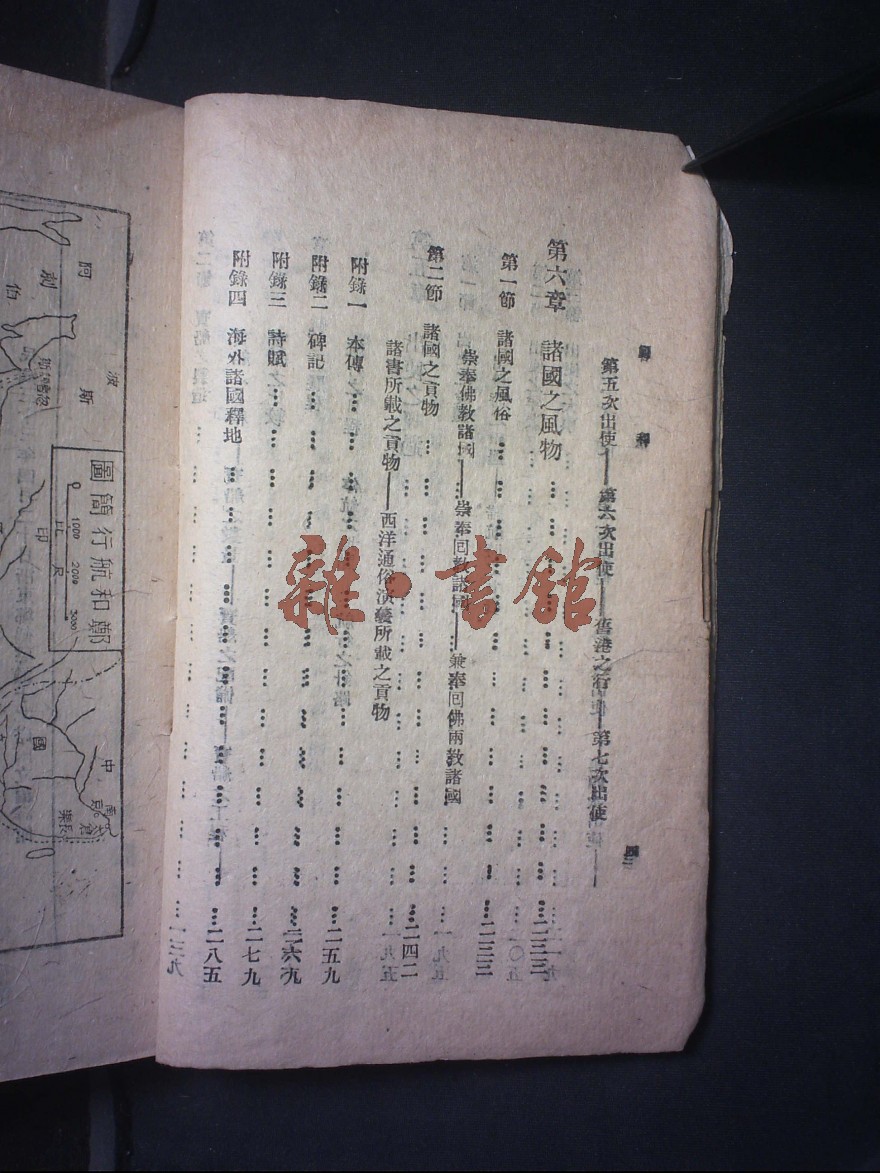 第五次出使——第六次出使——舊港之行——第七次出使
第六章 諸國之風物 二三三
第一節 諸國之風俗 二三三
崇奉佛教諸國——崇奉回教諸國——兼奉回佛兩教諸國
第二節 諸國之貢物 二四二
諸書所載之貢物——西洋通俗演義所載之貢物
附錄一 本傳
附錄二 碑記 二五九
附錄三 詩賦 二六九
附錄四 海外諸國釋地 二七九
二八五
雜·書館
鄭和航行簡圖
比尺
0 1000 2000 3000
阿剌伯
波斯
印
中國
太倉
長樂